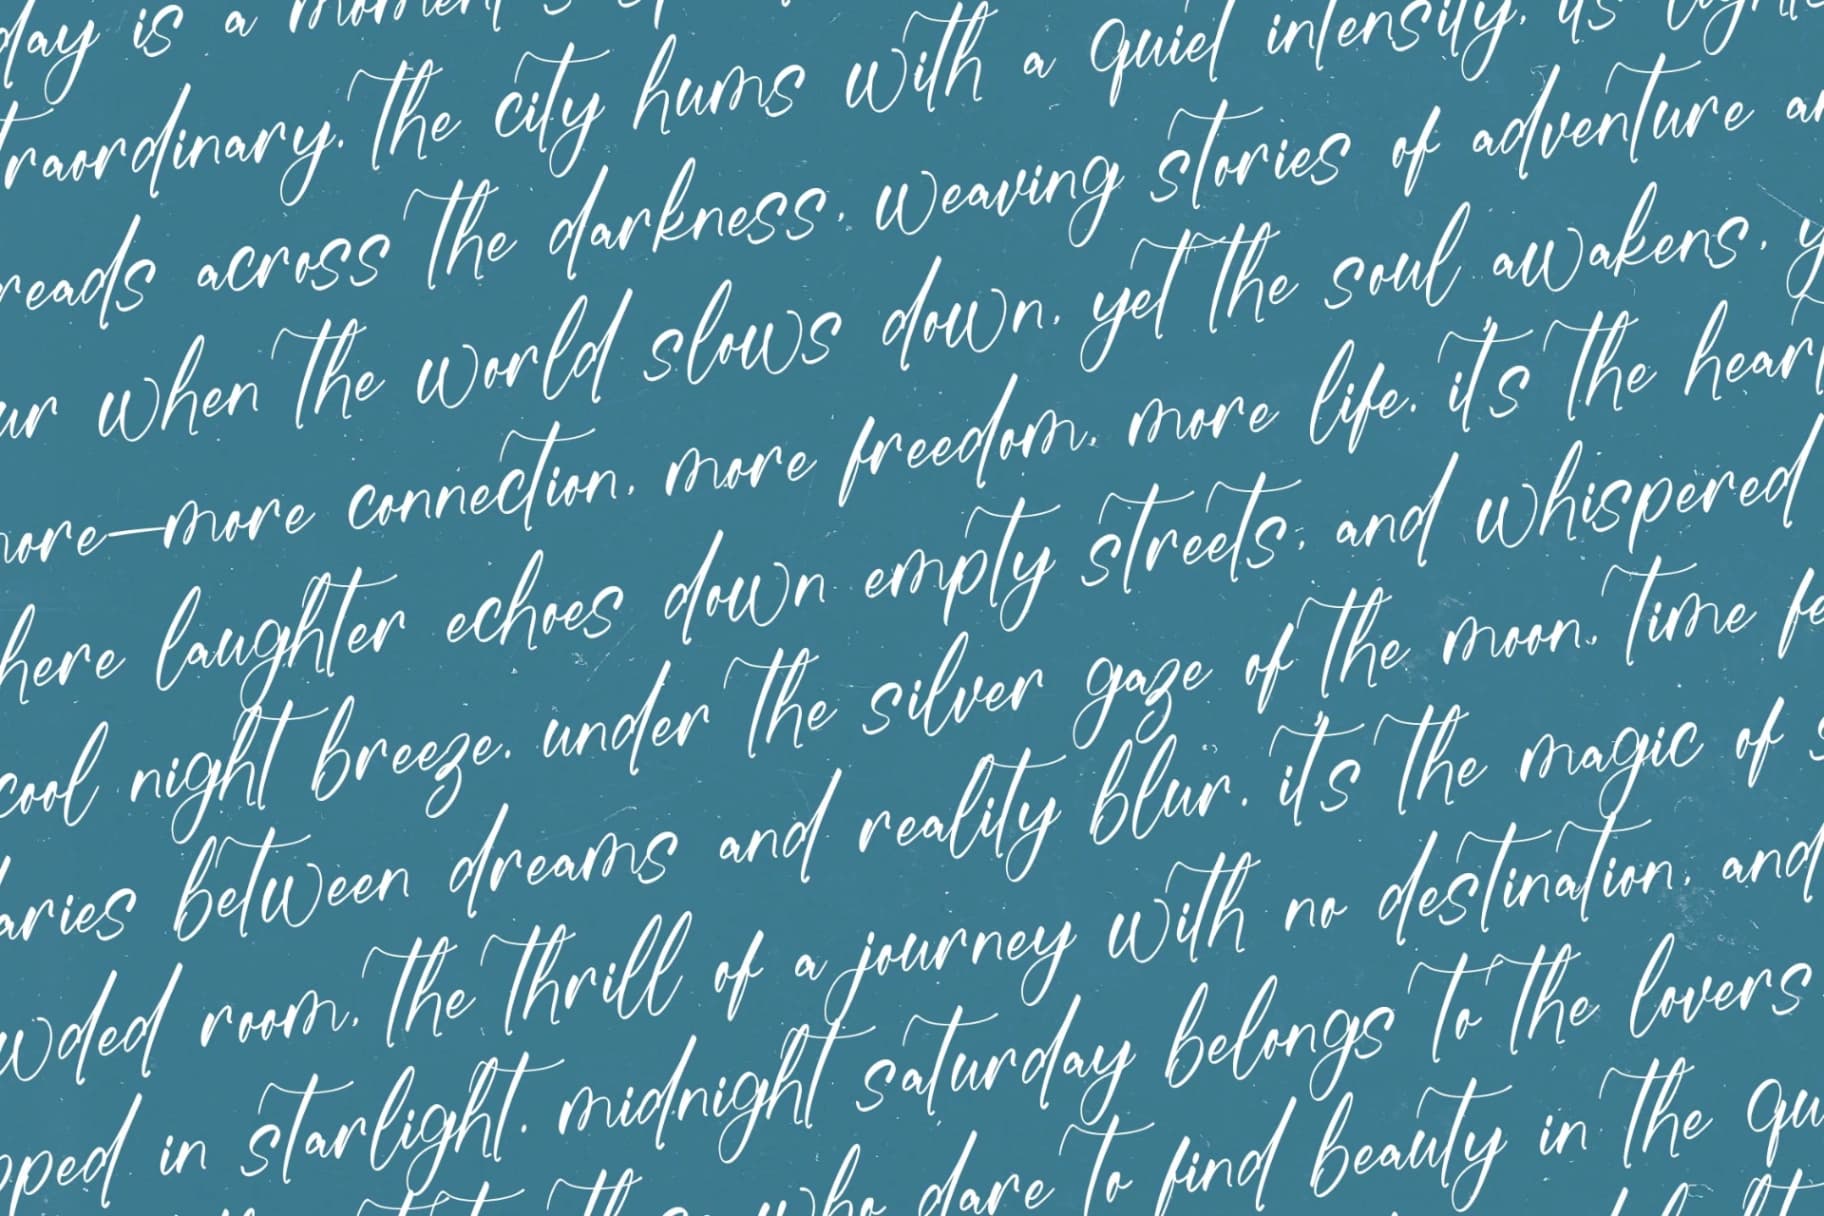 day is a moment's
traordinary. the city hums with a quiet intensity, its
reads across the darkness, weaving stories of adventure
ur when the world slows down, yet the soul awakens,
more—more connection, more freedom, more life. it's the heart
here laughter echoes down empty streets, and whispered
cool night breeze. under the silver gaze of the moon, time fe
aries between dreams and reality blur. it's the magic of s
wded room, the thrill of a journey with no destination, and
pped in starlight. midnight saturday belongs to the lovers
who dare to find beauty in the qu